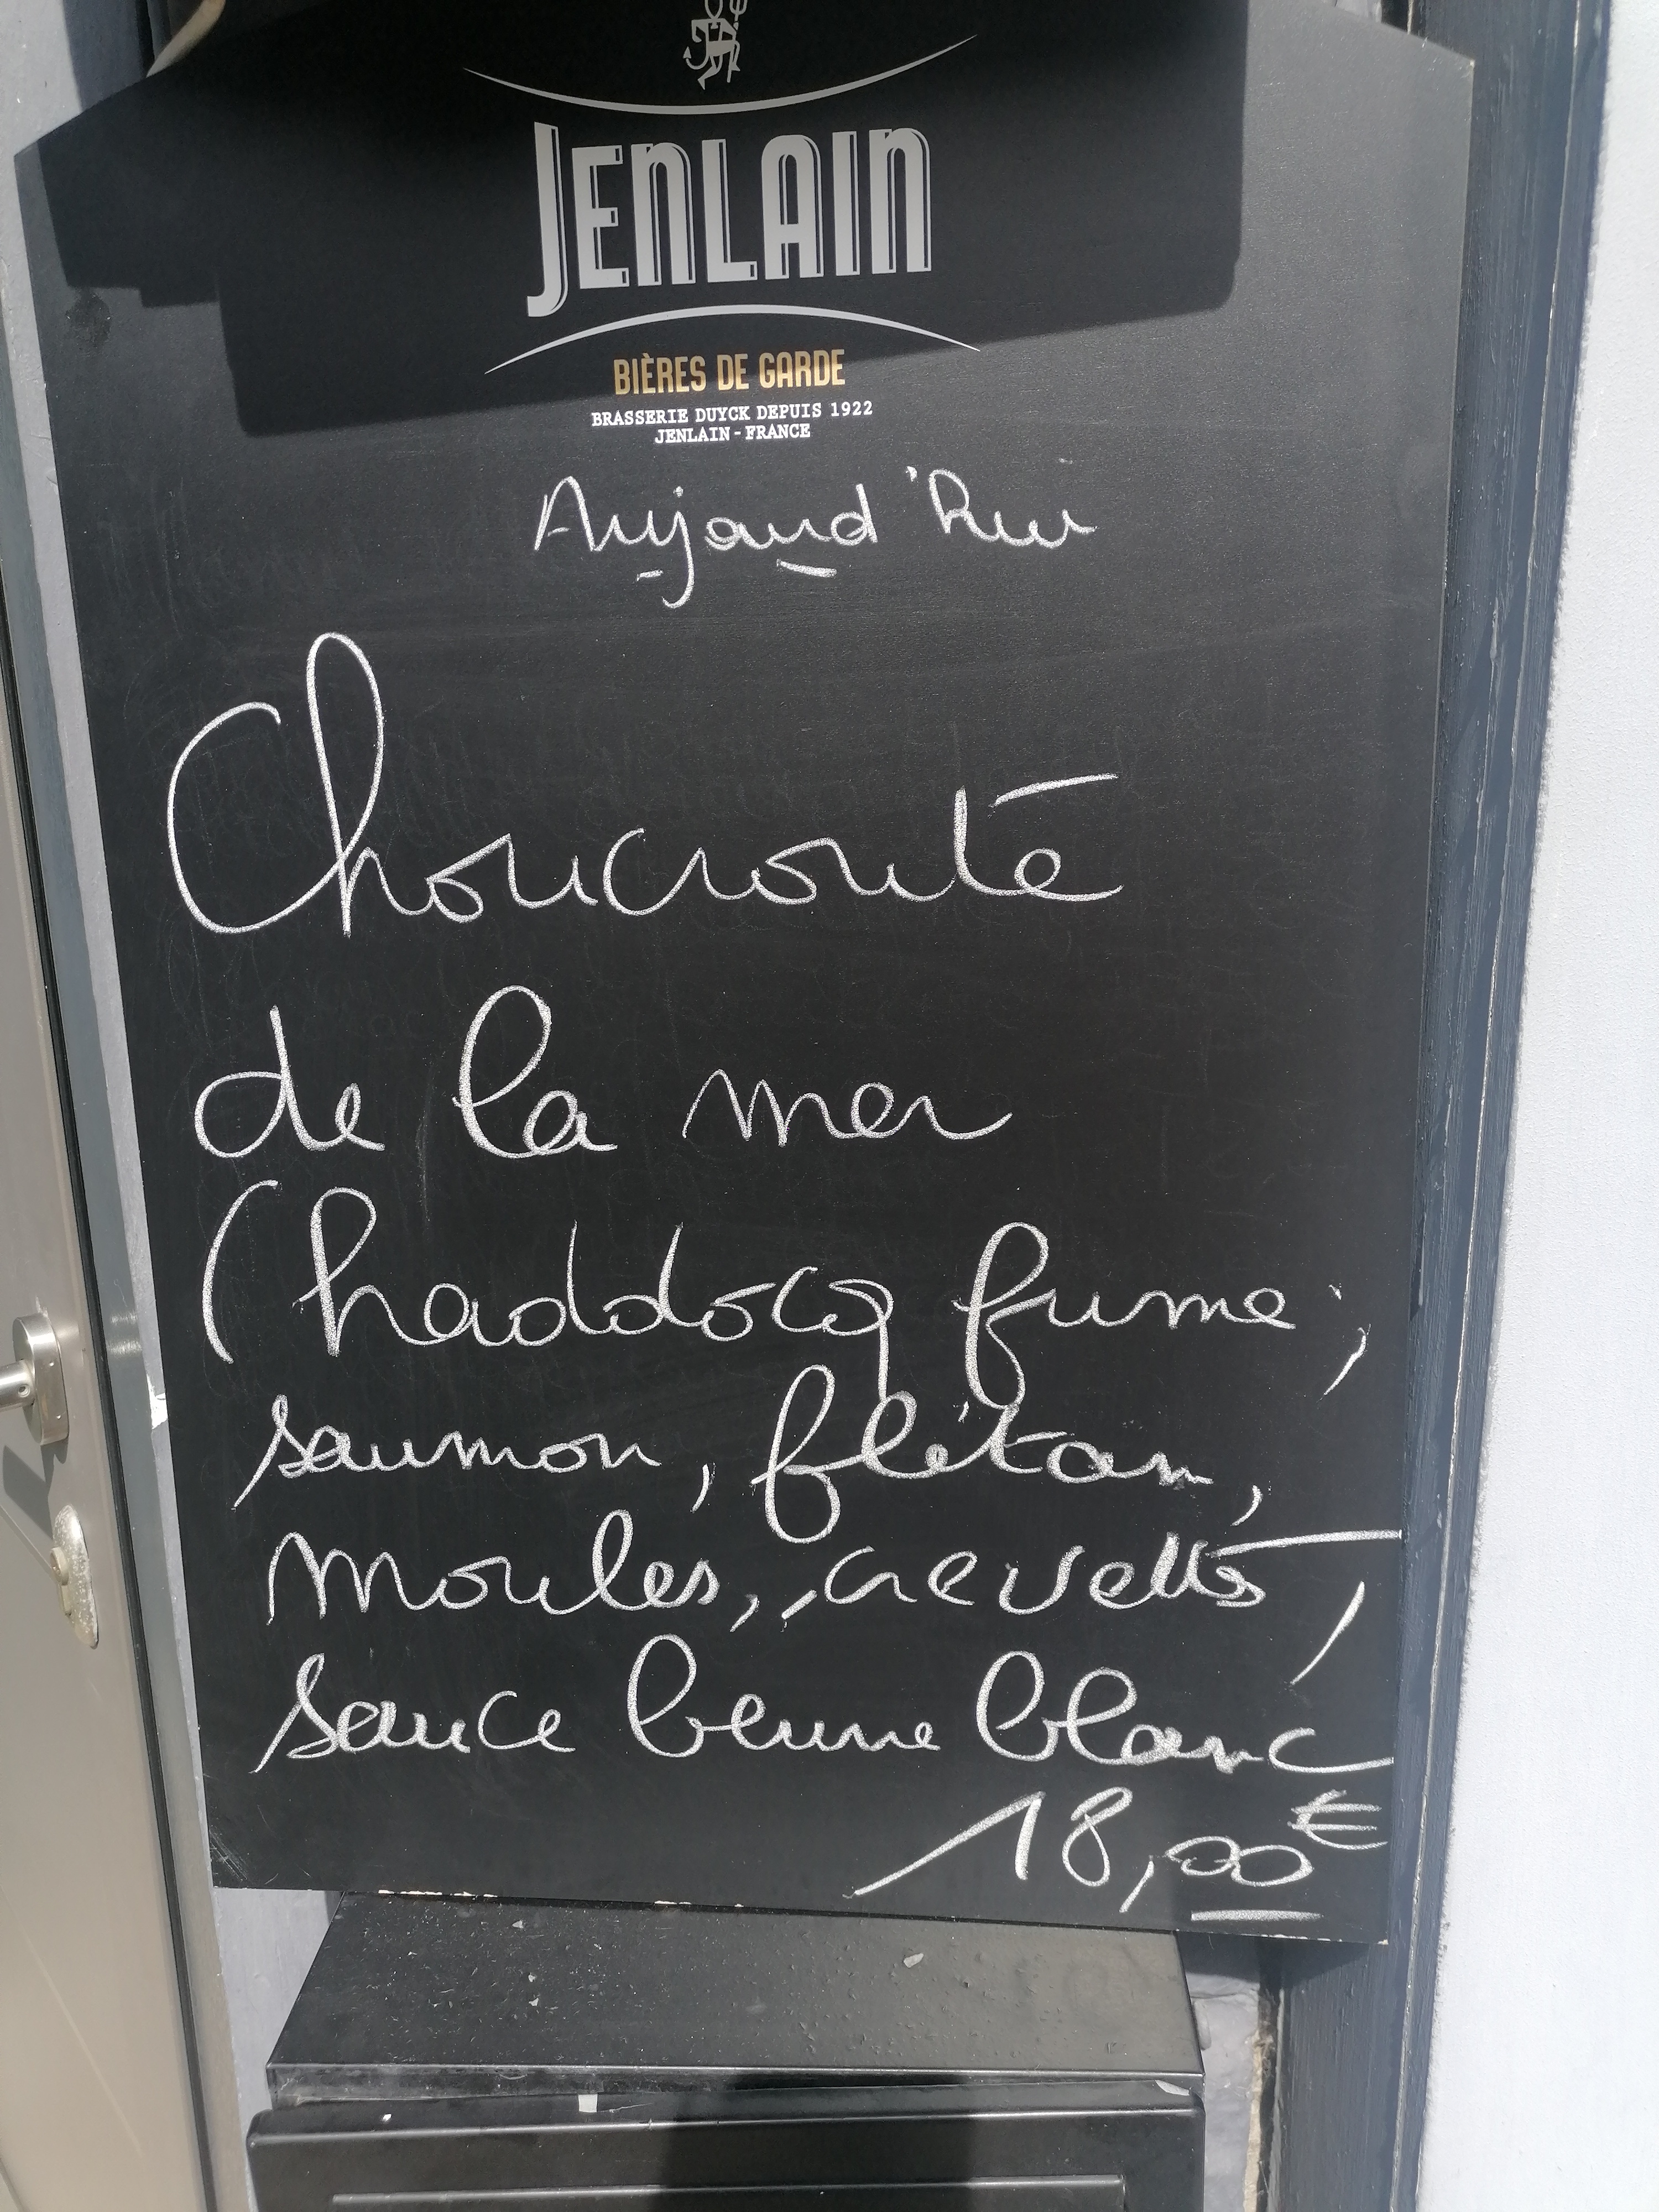 JENLAIN
BIÈRES DE GARDE
BRASSERIE DUYCK DEPUIS 1922
JENLAIN - FRANCE
Aujourd'hui
Choucroute
de la mer
(haddocq fumé,
saumon, flétan,
moules, crevettes,
sauce beurre blanc
18,00€